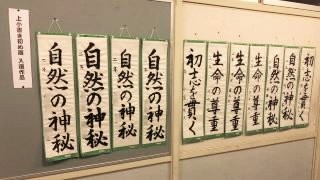 上小書き初め展 入選作品
自然の神秘
自然の神秘
自然の神秘
自然の神秘
初志を貫く
生命の尊重
生命の尊重
生命の尊重
自然の神秘
自然の神秘
初志を貫く